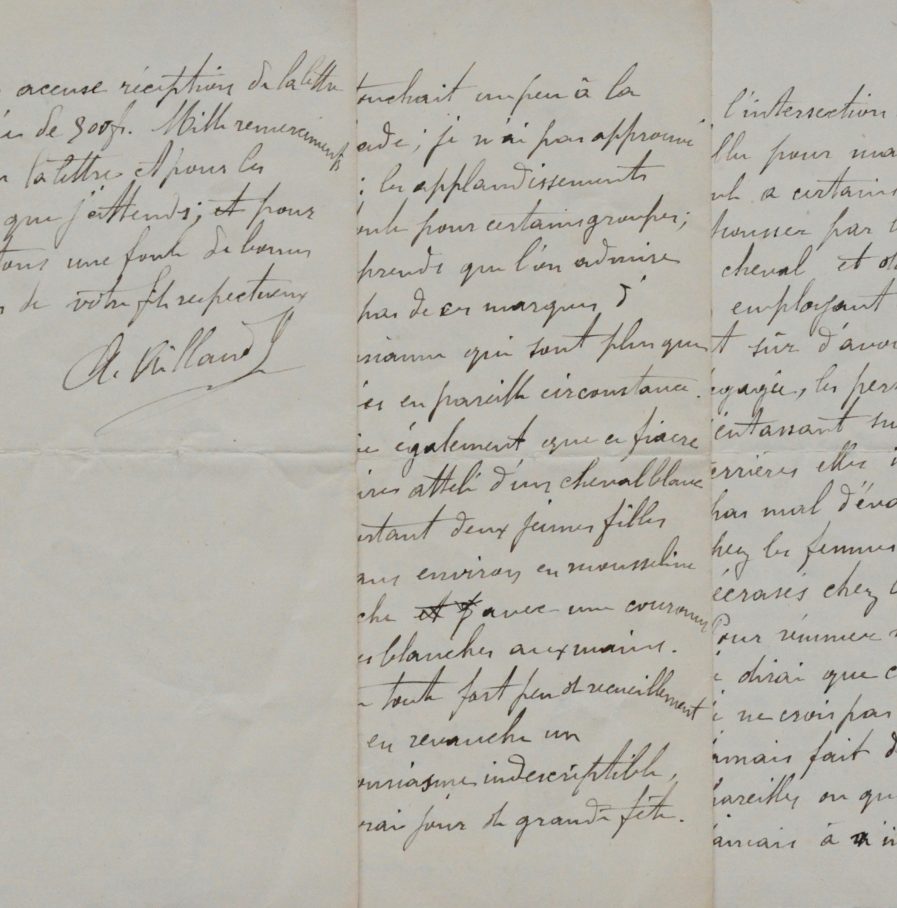 accuse réception de la lettre
de 300f. Mille remerciements
la lettre et pour les
que j'attends; et pour
tous une foule de bonnes
de votre fils respectueux
A. Rilland
touchait un peu à la
ade; je n'ai pas approuvé
les applaudissements
oule pour certains groupes;
prends que l'on admire
pas de ces marques d'
siasme qui sont plus que
es en pareille circonstance.
ie également que ce fiacre
ires attelé d'un cheval blanc
rtant deux jeunes filles
ans environ en mousseline
che et f avec une couronne
es blanches aux mains.
toute fort peu de recueillement
en revanche un
ousiasme indescriptible,
rai jour de grande fête.
l'intersection
lle pour ma
a certains
pousser par
cheval et
employant
t sûr d'avoi
égagée, les pers
entassant su
errières elles
pas mal d'éva
hez les femmes
écrasés chez
Pour résumer
dirai que c
ne crois pas
amais fait d
pareilles ou qu
jamais à